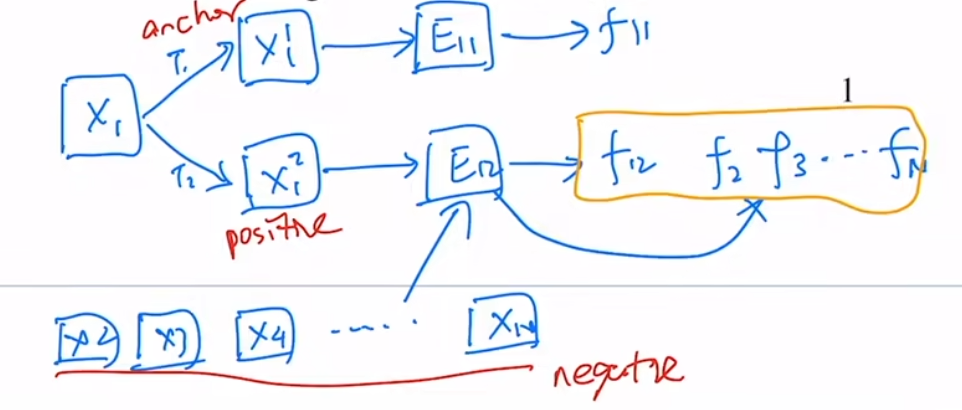 anchor
T₁ X₁¹ E₁₁ f₁₁
X₁
1
T₂ X₁² E₁₂ f₁₂ f₂ f₃ ... fₙ
positive
X2 X3 X4 ..... Xₙ
negative